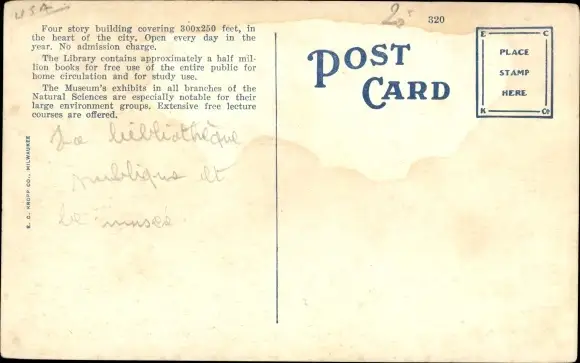 USA
20
320
Four story building covering 300x250 feet, in
the heart of the city. Open every day in the
year. No admission charge.
The Library contains approximately a half mil-
lion books for free use of the entire public for
home circulation and for study use.
The Museum's exhibits in all branches of the
Natural Sciences are especially notable for their
large environment groups. Extensive free lecture
courses are offered.
La bibliothèque
publique et
le musée
E. C. KROPP CO., MILWAUKEE
POST
CARD
E C
PLACE
STAMP
HERE
K Co